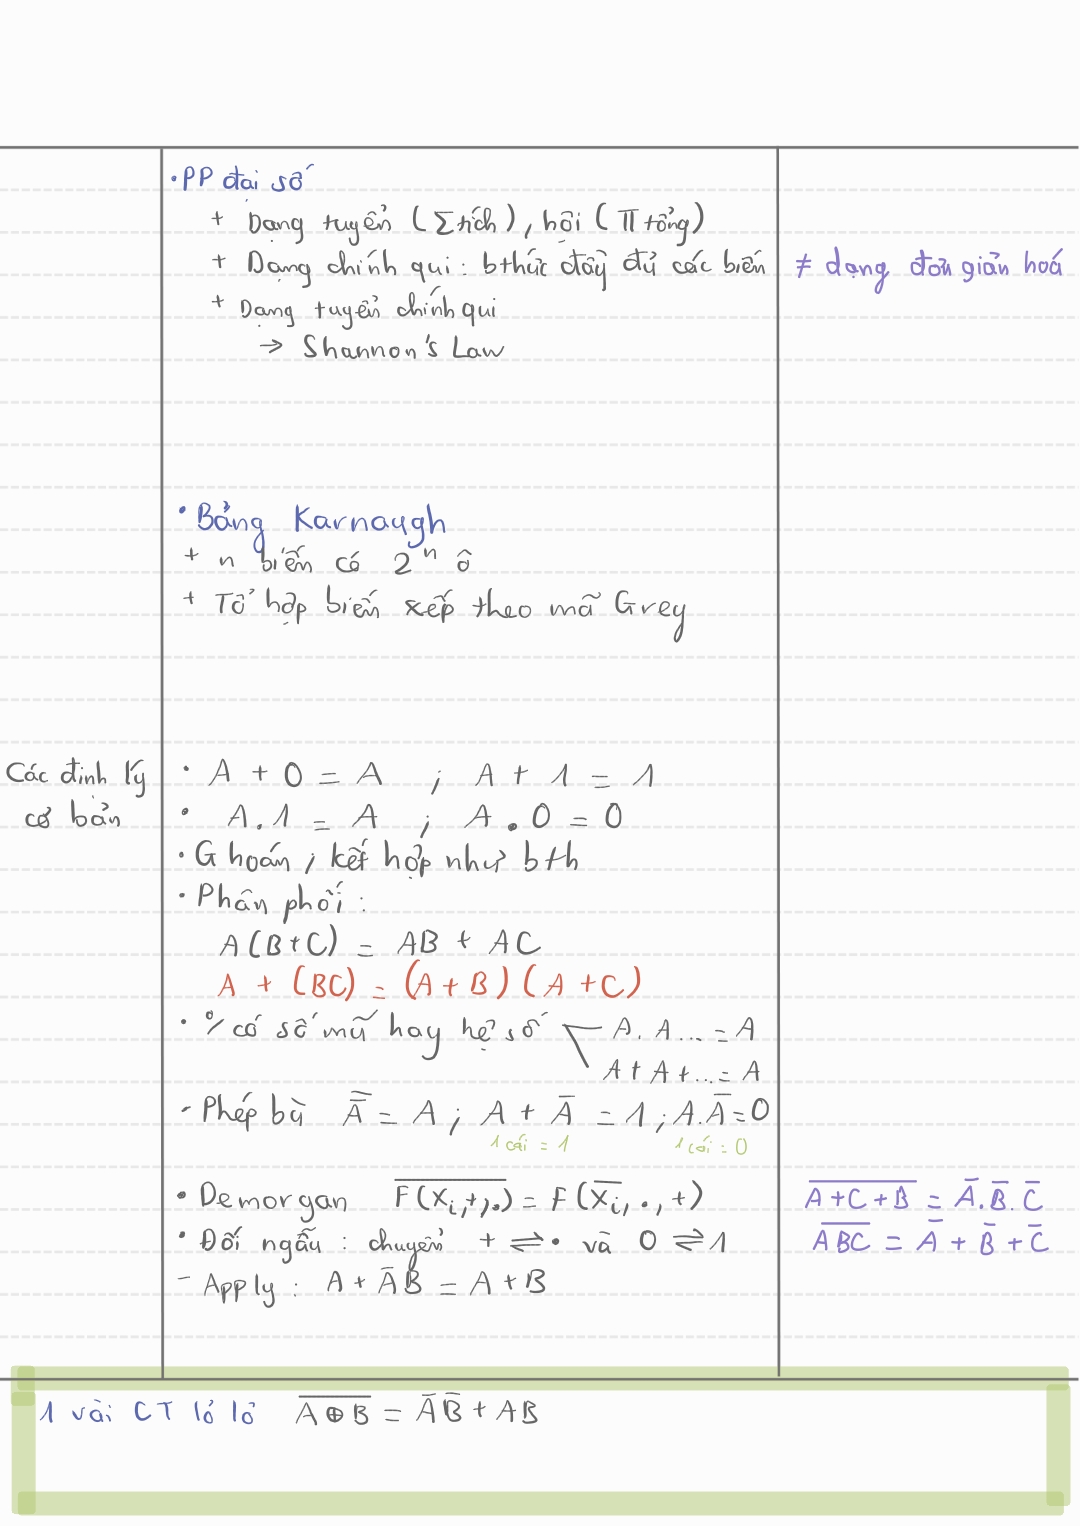 • PP đại số
+ Dạng tuyển (Σ tích), hội (Π tổng)
+ Dạng chính qui : bthức đầy đủ các biến ≠ dạng đơn giản hoá
+ Dạng tuyển chính qui
→ Shannon's Law
• Bảng Karnaugh
+ n biến có 2ⁿ ô
+ Tổ hợp biến xếp theo mã Grey
Các định lý cơ bản
• A + 0 = A ; A + 1 = 1
• A.1 = A ; A.0 = 0
• G hoán, kết hợp như bth
• Phân phối :
A(B+C) = AB + AC
A + (BC) = (A+B)(A+C)
• có số mũ hay hệ số
A.A... = A
A+A+... = A
- Phép bù A̿ = A ; A + A̅ = 1 ; A.A̅ = 0
1 cái = 1 1 cái = 0
• Demorgan F̅(̅X̅ᵢ̅,̅+̅,̅.̅)̅ = F(X̅ᵢ, ., +) A̅+̅C̅+̅B̅ = A̅.B̅.C̅
• Đối ngẫu : chuyển + ⇌ • và 0 ⇌ 1 A̅B̅C̅ = A̅ + B̅ + C̅
- Apply : A + A̅B = A + B
1 vài CT lỏ lỏ A̅⊕̅B̅ = A̅B̅ + AB